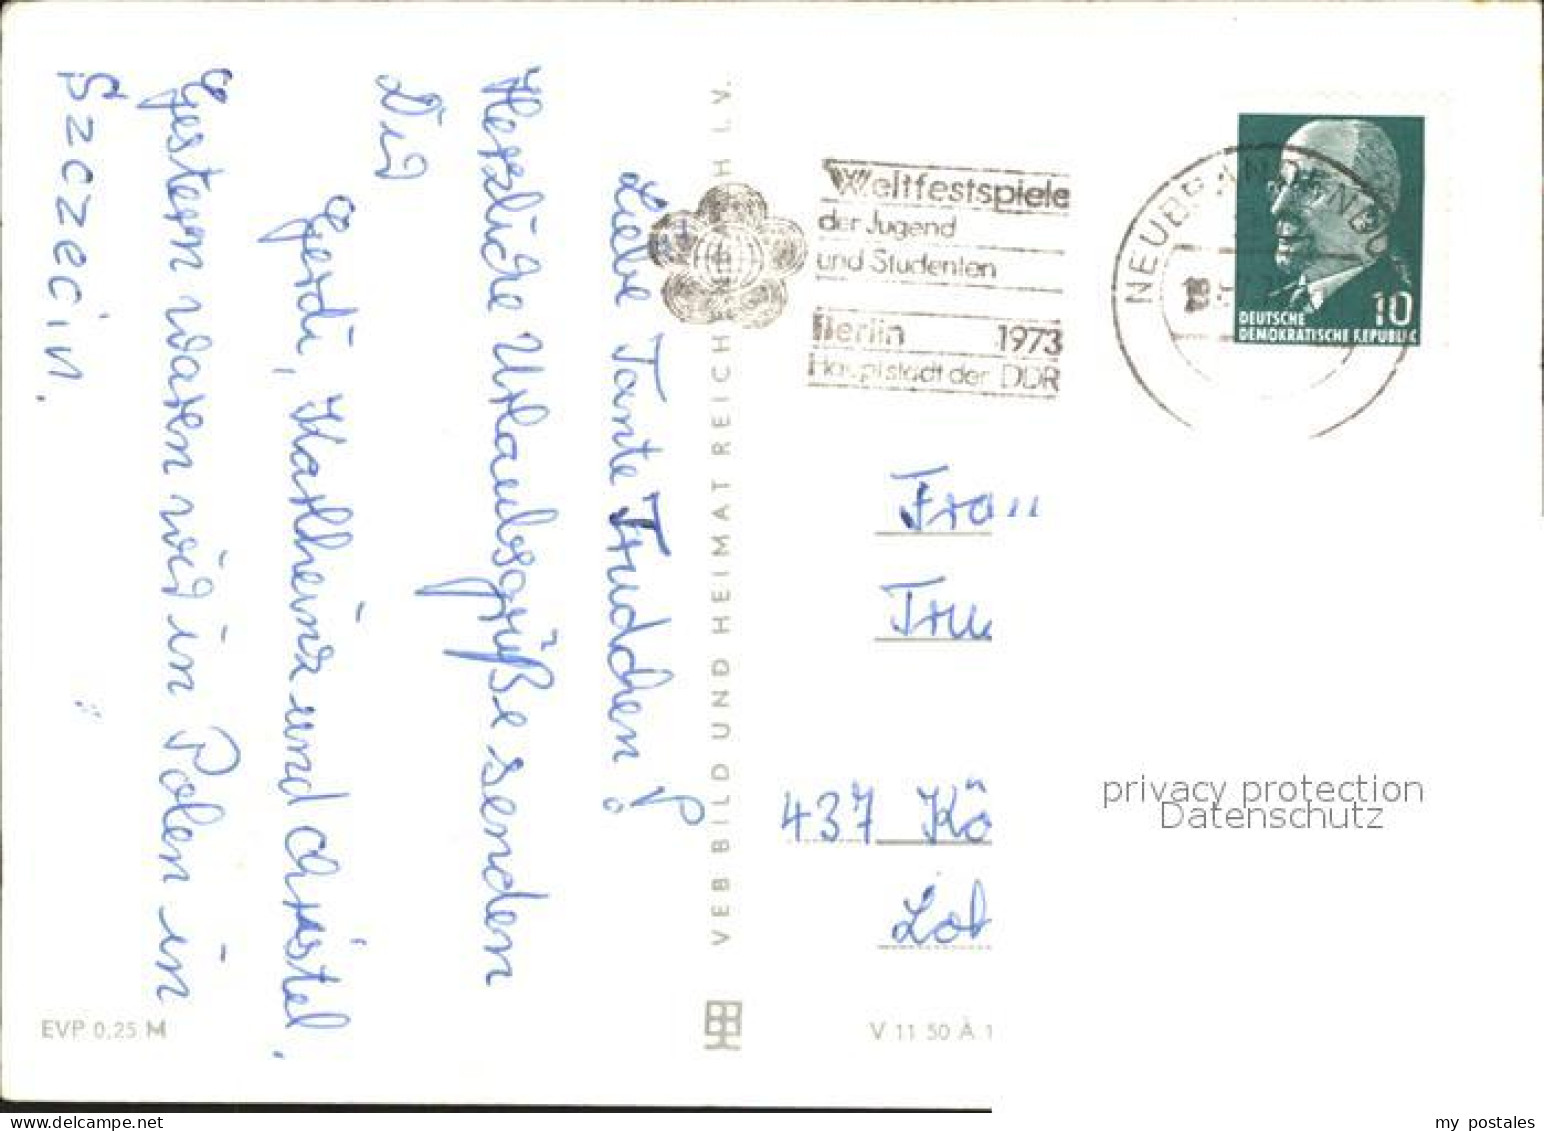 Liebe Tante Trudchen!
Herzliche Urlaubsgrüße senden
Dir
Gerdi, Karlheinz und Christel.
Gestern waren wir in Polen in
Szczecin.
EVP 0,25 M
VEB BILD UND HEIMAT REICH H I. V.
V 11 50 A 1
Weltfestspiele
der Jugend
und Studenten
Berlin 1973
Hauptstadt der DDR
NEUBRANDENBU
10
DEUTSCHE
DEMOKRATISCHE REPUBLIK
Frau
Tru
437 Kö
privacy protection
Datenschutz
my postales